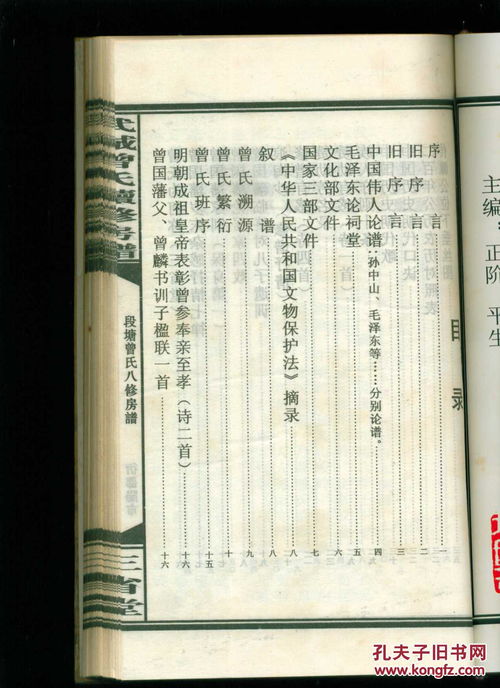 主编：正阶 平生
目录
序言……一
旧序言……二
旧序言……三
中国伟人论谱：孙中山、毛泽东等……分别论谱。四
毛泽东论祠堂……五
文化部文件……六
国家三部文件……七
《中华人民共和国文物保护法》摘录……八
叙谱……八
曾氏溯源……九
曾氏繁衍……十
曾氏班序……十五
明朝成祖皇帝表彰曾参奉亲至孝（诗二首）……十六
曾国藩父、曾麟书训子楹联一首……十六
武城曾氏續修房譜
段塘曾氏八修房譜
三省堂
孔夫子旧书网
www.kongfz.com